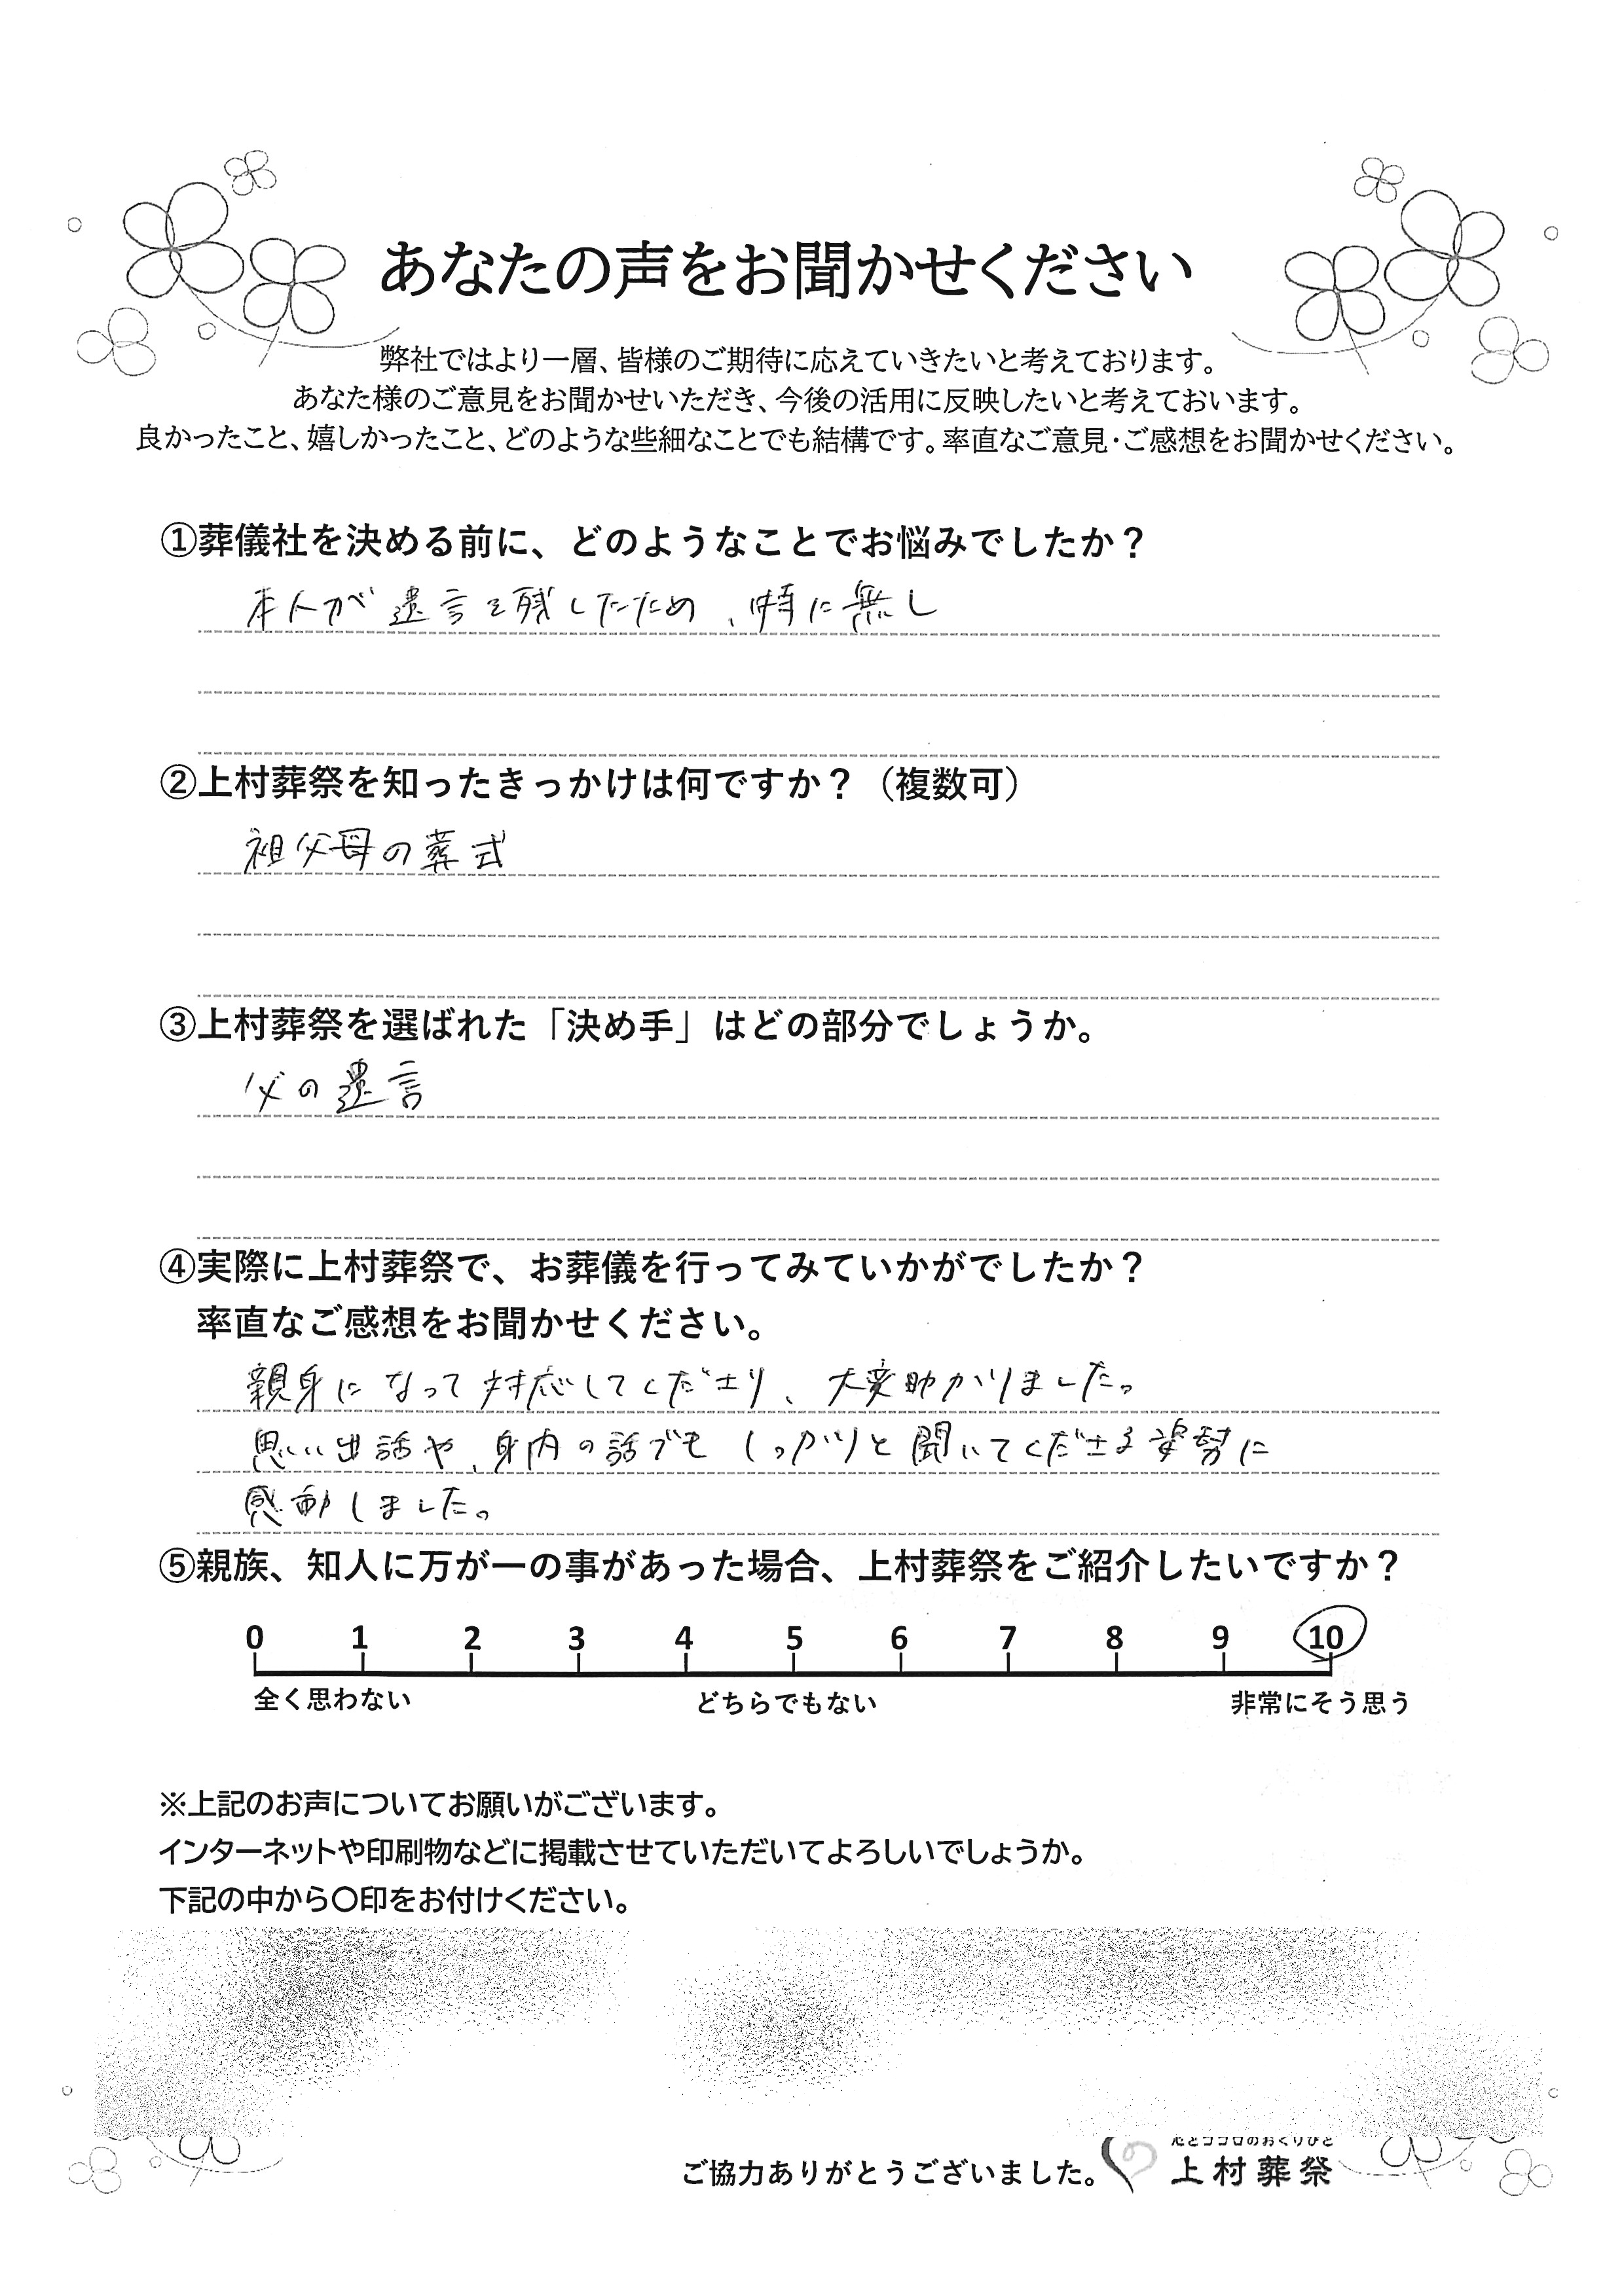 あなたの声をお聞かせください
弊社ではより一層、皆様のご期待に応えていきたいと考えております。
あなた様のご意見をお聞かせいただき、今後の活用に反映したいと考えておいます。
良かったこと、嬉しかったこと、どのような些細なことでも結構です。率直なご意見・ご感想をお聞かせください。
①葬儀社を決める前に、どのようなことでお悩みでしたか？
本人が遺言を残したため、特に無し
②上村葬祭を知ったきっかけは何ですか？（複数可）
祖父母の葬式
③上村葬祭を選ばれた「決め手」はどの部分でしょうか。
父の遺言
④実際に上村葬祭で、お葬儀を行ってみていかがでしたか？
率直なご感想をお聞かせください。
親身になって対応してくださり、大変助かりました。
思い出話や、身内の話でもしっかりと聞いてくださる姿勢に
感動しました。
⑤親族、知人に万が一の事があった場合、上村葬祭をご紹介したいですか？
0 1 2 3 4 5 6 7 8 9 10
全く思わない どちらでもない 非常にそう思う
※上記のお声についてお願いがございます。
インターネットや印刷物などに掲載させていただいてよろしいでしょうか。
下記の中から〇印をお付けください。
心とココロのおくりびと
ご協力ありがとうございました。 上村葬祭